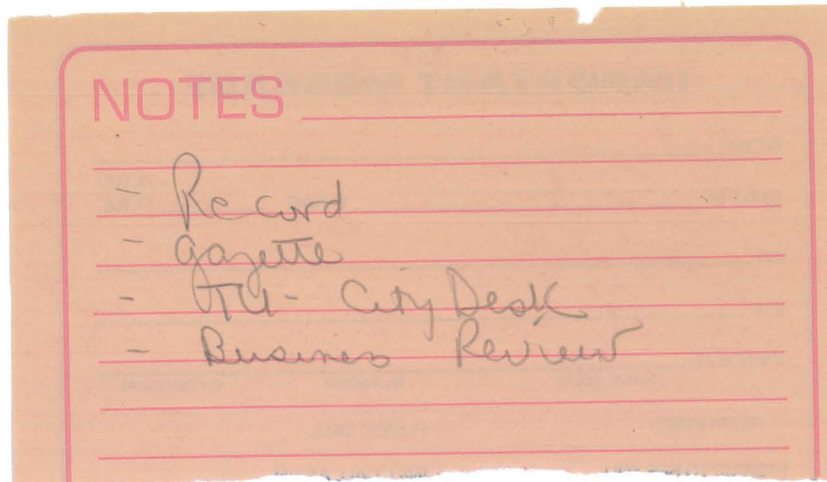 NOTES
- Record
- Gazette
- TU - City Desk
- Business Review